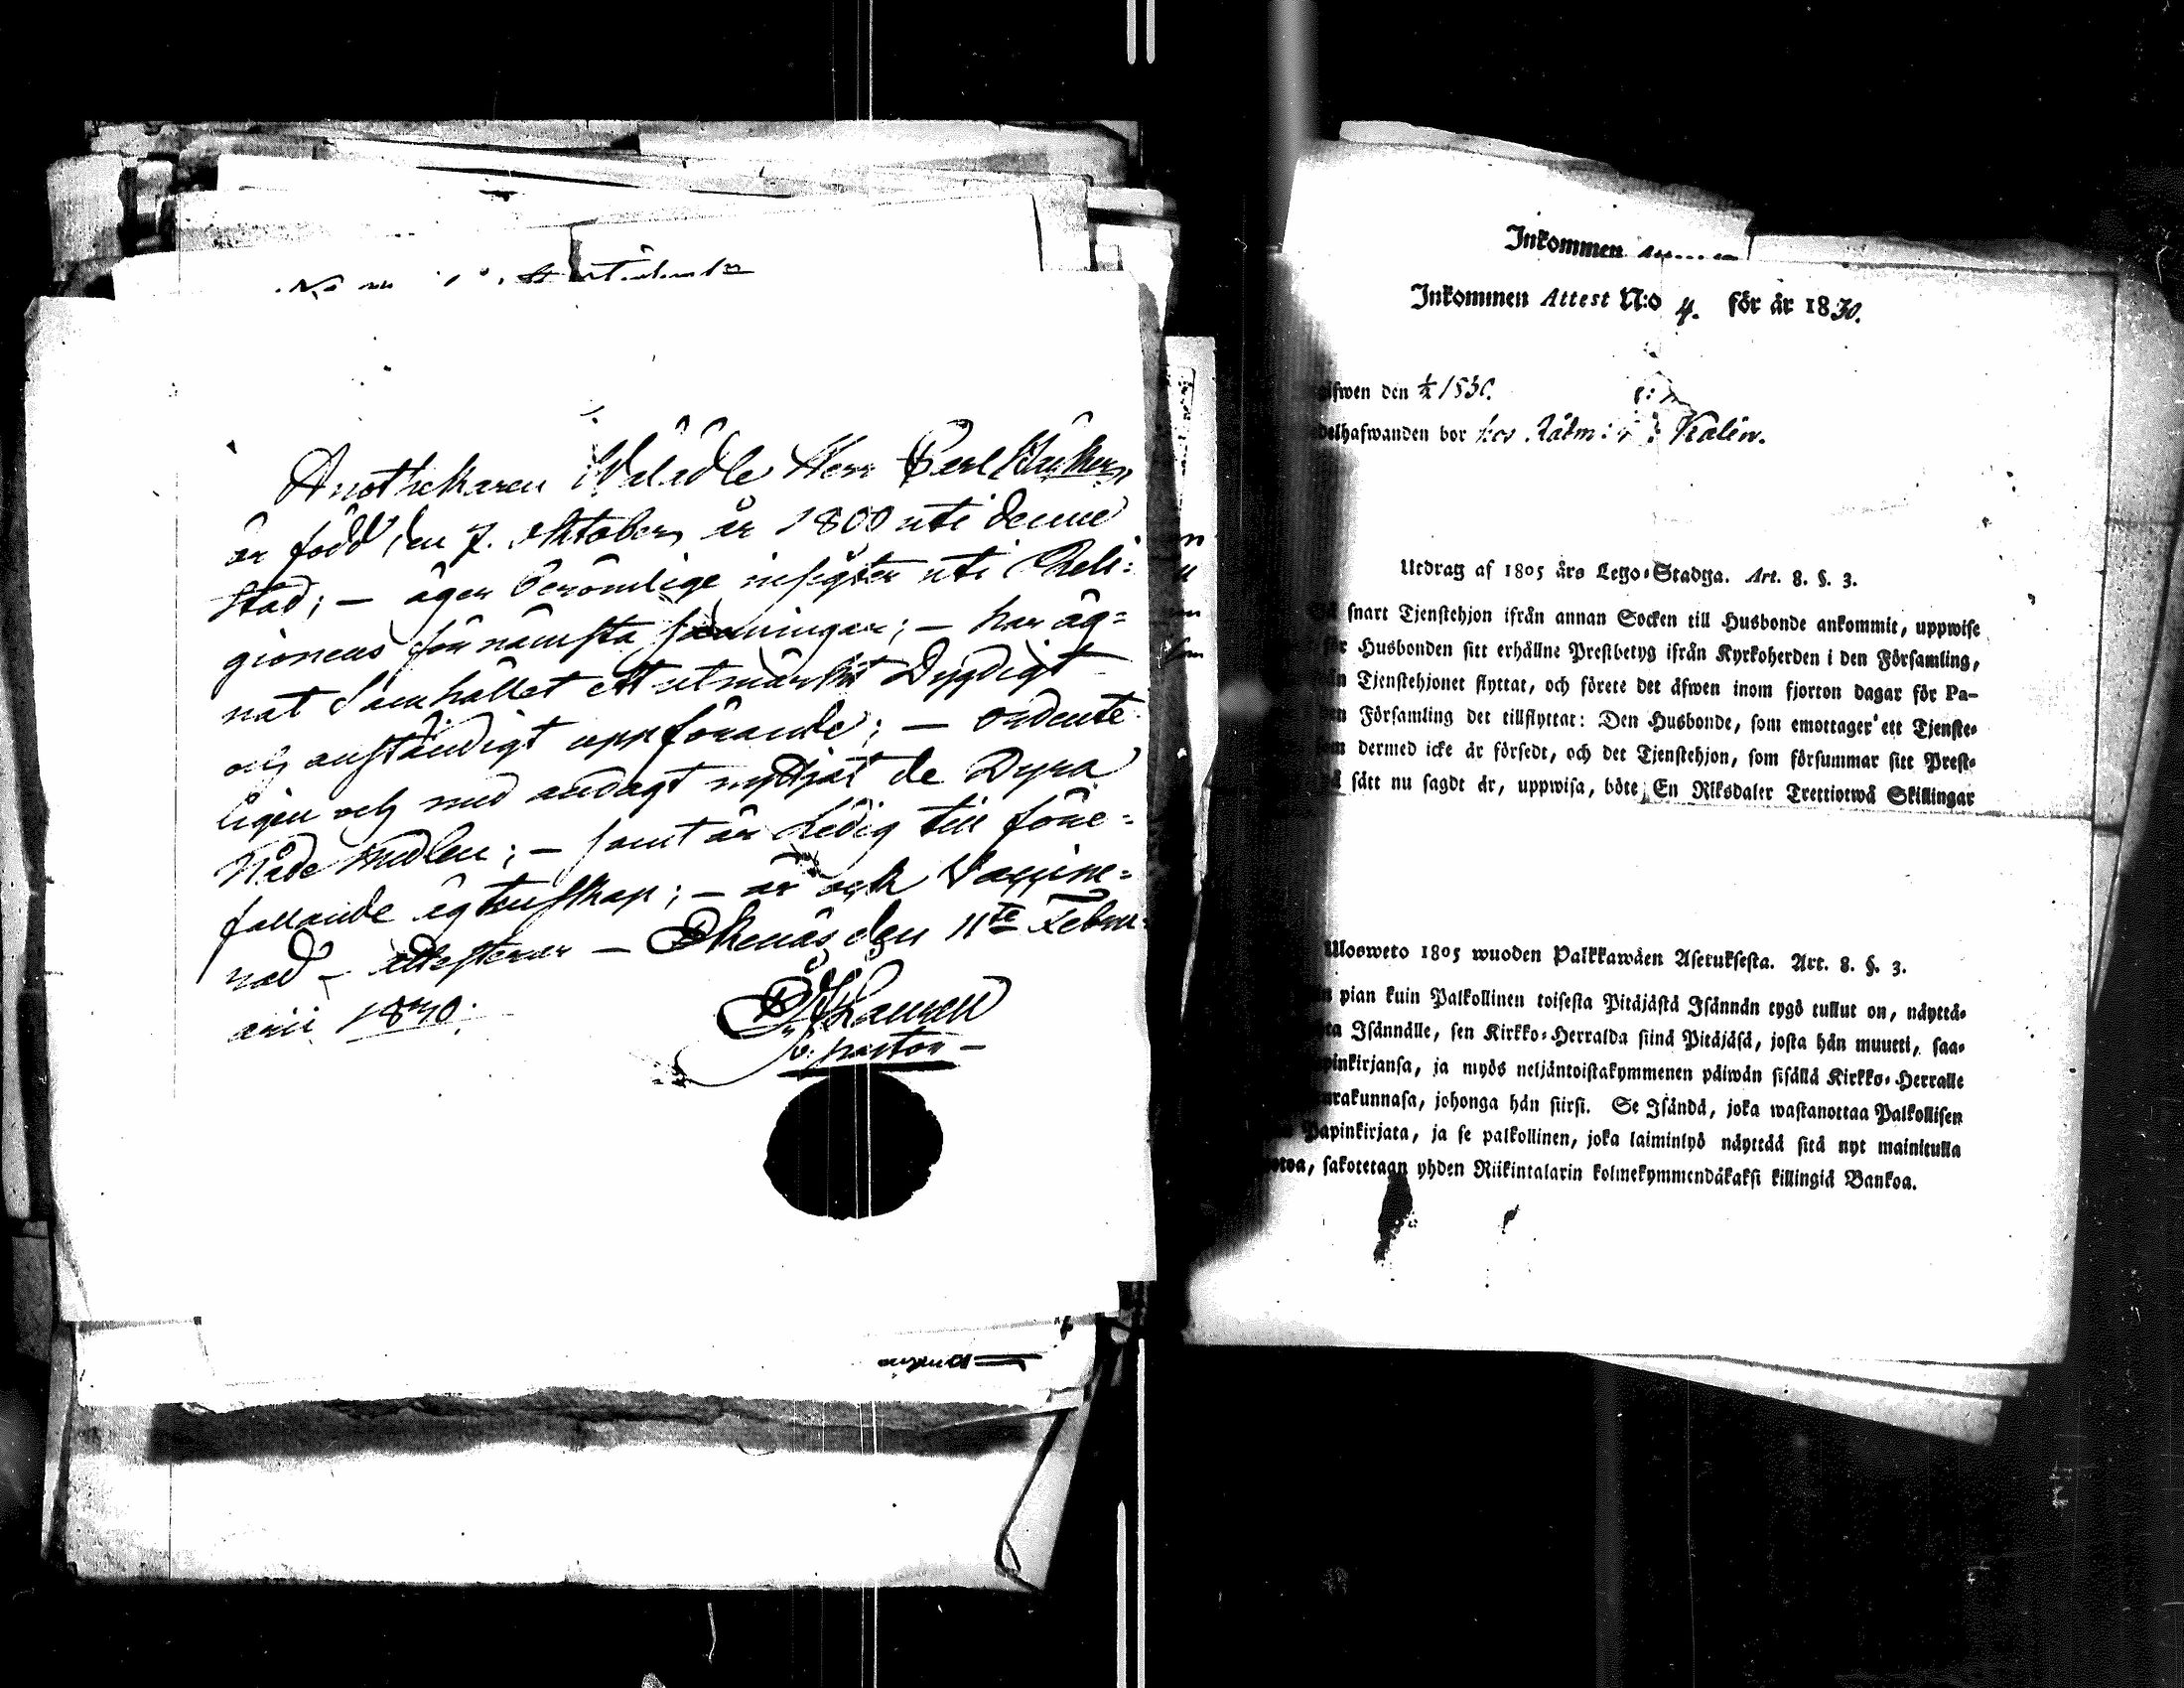 Apothekaren Wälädle Herr Carl
är född den 7. Oktober år 1800 uti denne
stad; — äger berömlige insigter uti Reli-
gionens förnämsta sanningar; — har äg-
nat Samhället ett utmärkt Dygdigt
och anständigt uppförande; — ordente-
ligen och med andagt nyttjat de Dyra
Nåde Medlen; — samt är Ledig till före-
fallande ägtenskap; — är ock Vaccine-
rad — attesterar — Ekenäs den 11te Febru-
arii 1830.
v. pastor —
Inkommen
Inkommen Attest N:o 4. för år 1830.
ifwen den ½ 1830.
delhafwanden bor hos Rådm: Kalin.
Utdrag af 1805 års Lego-Stadga. Art. 8. §. 3.
Så snart Tjenstehjon ifrån annan Socken till Husbonde ankommit, uppwise
för Husbonden sitt erhållne Prestbetyg ifrån Kyrkoherden i den Församling,
Tjenstehjonet flyttat, och förete det äfwen inom fjorton dagar för Pa-
Församling det tillflyttat: Den Husbonde, som emottager ett Tjenste-
som dermed icke är försedt, och det Tjenstehjon, som försummar sitt Prest-
sätt nu sagdt är, uppwisa, böte En Riksdaler Trettiotwå Skillingar
Ulosweto 1805 wuoden Palkkawäen Asetuksesta. Art. 8. §. 3.
pian kuin Palkollinen toisesta Pitäjästä Isännän tygö tullut on, näyttä-
Isännälle, sen Kirkko-Herralda siinä Pitäjäsä, josta hän muutti, saa-
pinkirjansa, ja myös neljäntoistakymmenen päiwän sisällä Kirkko-Herralle
urakunnasa, johonga hän siirsi. Se Isändä, joka wastanottaa Palkollisen
Papinkirjata, ja se palkollinen, joka laiminlyö näyttää sitä nyt mainitulla
sakotetaan yhden Riikintalarin kolmekymmendäkaksi killingiä Bankoa.